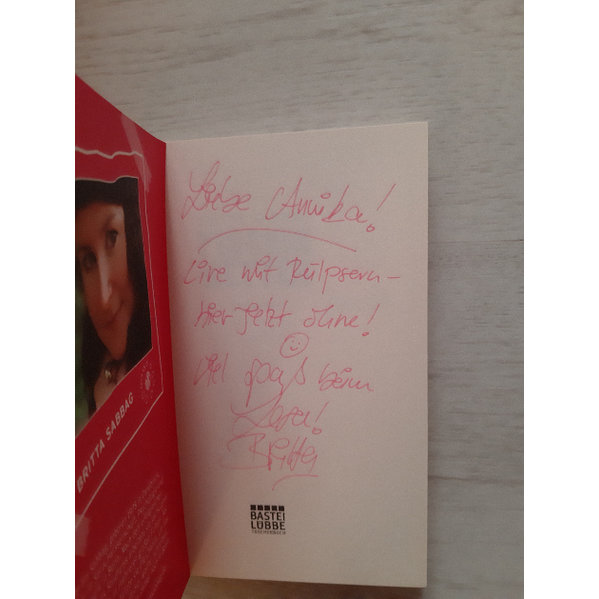 BRITTA SABBAG
Liebe Annika!
Live mit Rülpsern –
hier jetzt ohne!
Viel Spaß beim
Lesen!
Britta
BASTEI
LÜBBE
TASCHENBUCH